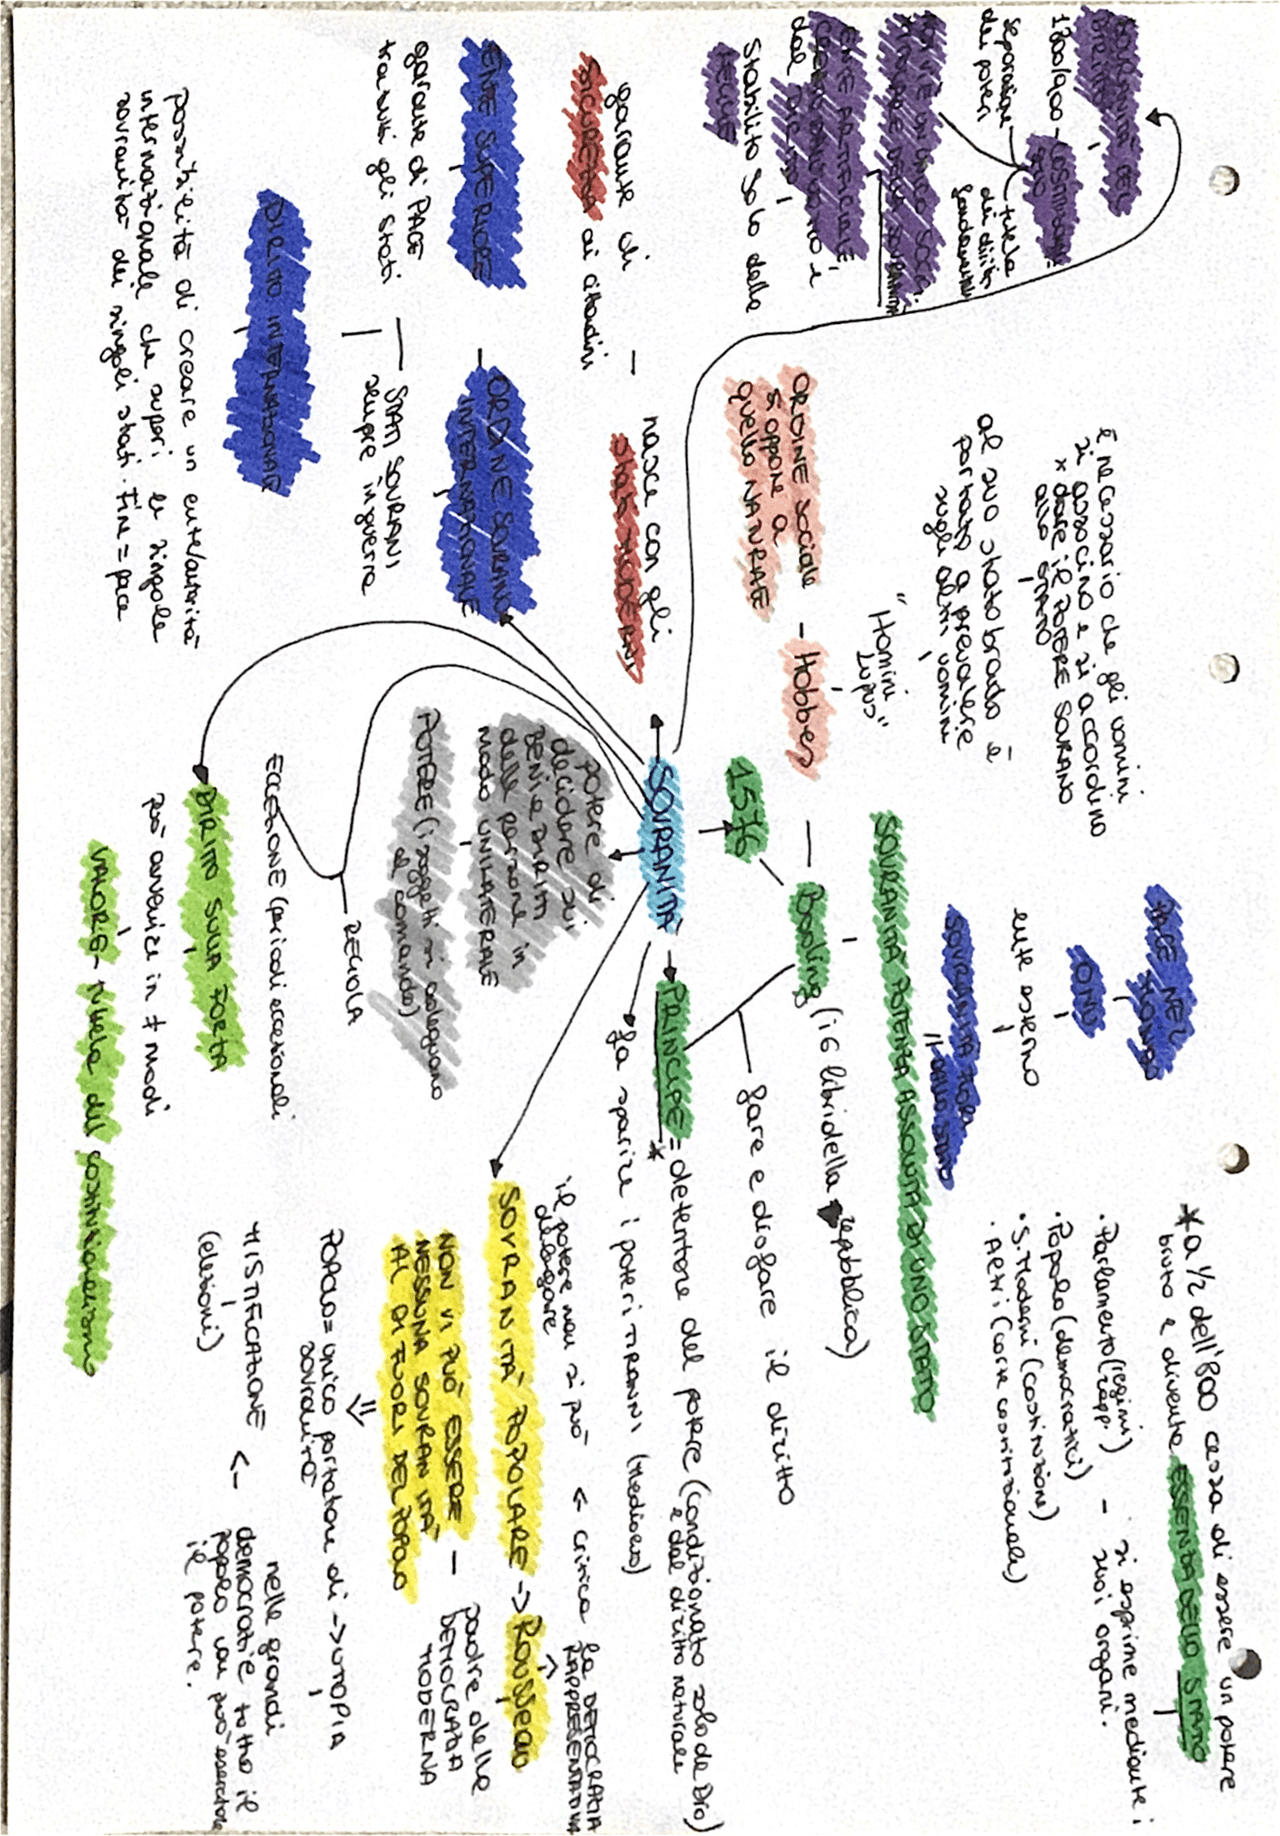 SOVRANITÀ DEL
DIRITTO
1800/1900 - COSTITUZIONALISMO
separazione
dei poteri
tutela
dei diritti
fondamentali
ENTE ARTIFICIALE
dal DIRITTO
Stabilito solo dalle
è necessario che gli uomini
si associno e si accordino
x dare il POTERE SOVRANO
allo STATO
al suo stato brado è
portato a prevalere
sugli altri uomini
"Homini
Lupus"
ORDINE SOCIALE - Hobbes
si oppone a
quello NATURALE
PACE NEL
MONDO
ONU
ente esterno
* a 1/2 dell'800 cessa di essere un potere
bruto e diventa ESSENZA DELLO STATO
• Parlamento (regimi) - si esprime mediante i
suoi organi.
• Popolo (democratici)
• S. Moderni (costituzioni)
• Altri (corte costituzionale)
SOVRANITÀ POTENZA ASSOLUTA DI UNO STATO
1576
Bodling (i 6 libri della repubblica)
fare e disfare il diritto
garante di
SICUREZZA ai cittadini
nasce con gli
STATI MODERNI
SOVRANITÀ
PRINCIPE* = detentore del potere (condizionato solo da Dio)
e dal diritto naturale
fa sparire i poteri TIRANNI (Medioevo)
ENTE SUPERIORE
garante di PACE
tra tutti gli stati
ORDINE SOVRANO
INTERNAZIONALE
STATI SOVRANI
sempre in guerra
DIRITTO INTERNAZIONALE
possibilità di creare un ente/autorità
internazionale che superi la singola
sovranità dei singoli stati. Fine = pace
potere di
decidere sui
BENI e DIRITTI
delle persone in
modo UNILATERALE
POTERE (i soggetti si adeguano
al comando)
REGOLA
ECCEZIONE (periodi eccezionali
DIRITTO SULLA FORZA
può avvenire in + modi
VALORE - tutela del costituzionalismo
SOVRANITÀ POPOLARE -> Rousseau
il potere non si può
delegare
<- critica la DEMOCRAZIA
RAPPRESENTATIVA
NON VI PUÒ ESSERE
NESSUNA SOVRANITÀ
AL DI FUORI DEL POPOLO
padre della
DEMOCRAZIA
MODERNA
POPOLO = unico portatore di -> UTOPIA
sovranità
MISTIFICAZIONE <-
(elezioni)
nelle grandi
democrazie tutto il
popolo non può esercitare
il potere.